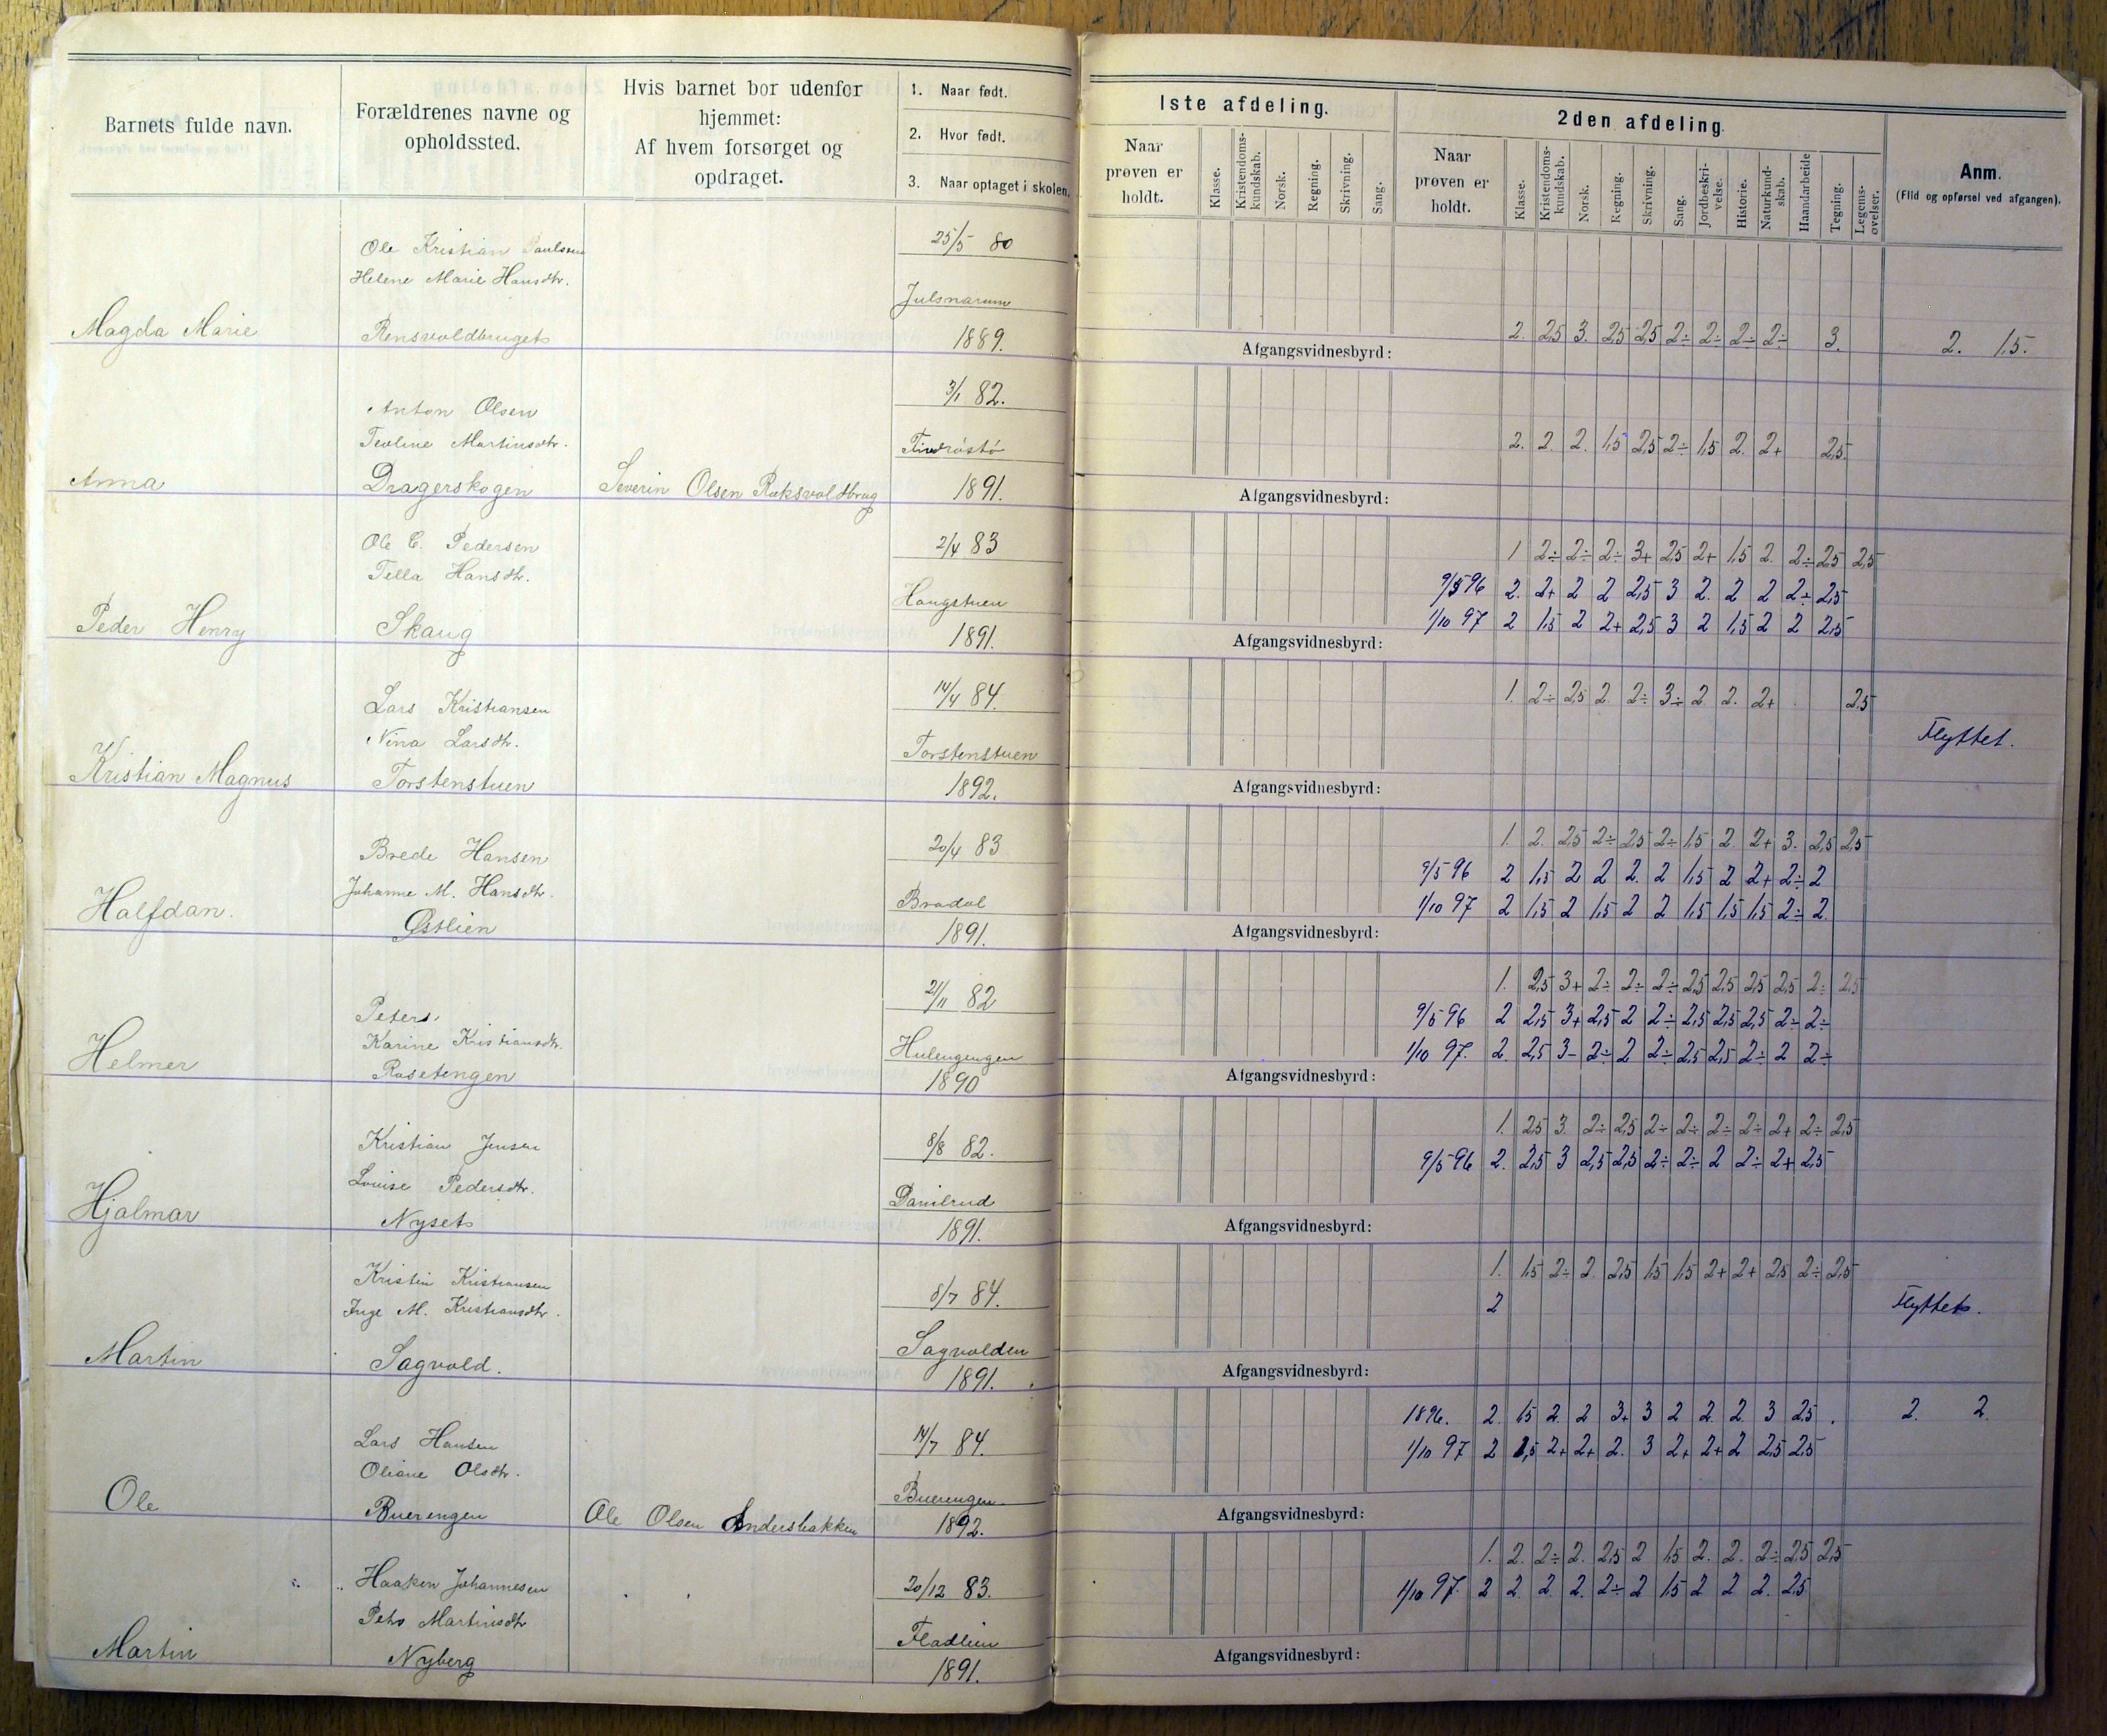 Barnets fulde navn.
Forældrenes navne og
opholdssted.
Hvis barnet bor udenfor
hjemmet:
Af hvem forsørget og
opdraget.
1. Naar født.
2. Hvor født.
3. Naar optaget i skolen.
1ste afdeling.
Naar
prøven er
holdt.
Klasse.
Kristendoms-
kundskab.
Norsk.
Regning.
Skrivning.
Sang.
2den afdeling.
Naar
prøven er
holdt.
Klasse.
Kristendoms-
kundskab.
Norsk.
Regning.
Skrivning.
Sang.
Jordbeskri-
velse.
Historie.
Naturkund-
skab.
Haandarbeide
Tegning.
Legems-
øvelser.
Anm.
(Flid og opførsel ved afgangen).
Magda Marie
Ole Kristian Paulsen
Helene Marie Hansdtr.
Rensvoldbruget
25/5 80
Julsnarum
1889.
2. 2,5 3. 2,5 2,5 2÷ 2÷ 2÷ 2÷ 3.
2. 1,5.
Afgangsvidnesbyrd:
Anna
Anton Olsen
Teoline Martinsdtr.
Dragerskogen
Severin Olsen Roksvoldbrug
3/1 82.
1891.
2. 2. 2. 1,5 2,5 2÷ 1,5 2. 2+ 2,5.
Afgangsvidnesbyrd:
Peder Henry
Ole C. Pedersen
Tella Hansdtr.
Skaug
2/4 83
Haugstuen
1891.
1 2÷ 2÷ 2÷ 3+ 2,5 2+ 1,5 2. 2÷ 2,5 2,5
9/5 96 2. 2+ 2 2 2,5 3 2. 2 2 2÷ 2,5
1/10 97 2 1,5 2 2+ 2,5 3 2 1,5 2 2 2,5
Afgangsvidnesbyrd:
Kristian Magnus
Lars Kristiansen
Nina Larsdtr.
Torstenstuen
14/4 84.
Torstenstuen
1892.
1. 2÷ 2,5 2. 2÷ 3÷ 2 2. 2+ 2,5
Flyttet.
Afgangsvidnesbyrd:
Halfdan.
Brede Hansen
Johanne M. Hansdtr.
Østlien
20/4 83
Bradal
1891.
1. 2. 2,5 2÷ 2,5 2÷ 1,5 2. 2+ 3. 2,5 2,5
9/5 96 2 1,5 2 2 2. 2 1,5 2 2+ 2÷ 2
1/10 97 2 1,5 2 1,5 2 2 1,5 1,5 1,5 2÷ 2.
Afgangsvidnesbyrd:
Helmer
Peter
Karine Kristiansdtr.
Rosetengen
21/11 82
Hulengengen
1890
1. 2,5 3+ 2÷ 2÷ 2÷ 2,5 2,5 2,5 2,5 2÷ 2,5
9/5 96 2 2,5 3+ 2,5 2 2÷ 2,5 2,5 2,5 2÷ 2÷
1/10 97. 2. 2,5 3- 2÷ 2 2÷ 2,5 2,5 2÷ 2 2÷
Afgangsvidnesbyrd:
Hjalmar
Kristian Jensen
Lovise Pedersdtr.
Nyset
8/8 82.
Danilrud
1891.
1. 2,5 3. 2÷ 2,5 2÷ 2÷ 2÷ 2÷ 2+ 2÷ 2,5
9/5 96 2. 2,5 3 2,5 2,5 2÷ 2÷ 2 2÷ 2+ 2,5
Afgangsvidnesbyrd:
Martin
Kristin Kristiansen
Inge M. Kristiansdtr.
Sagvold.
8/7 84.
Sagvolden
1891.
1. 1,5 2÷ 2. 2,5 1,5 1,5 2+ 2+ 2,5 2÷ 2,5
2
Flyttet.
Afgangsvidnesbyrd:
Ole
Lars Hansen
Oliane Olsdtr.
Buerengen
Ole Olsen Andersbakken
14/7 84.
Buerengen
1892.
1896. 2. 1,5 2. 2 3+ 3 2 2. 2. 3 2,5
2. 2.
1/10 97 2 1,5 2+ 2+ 2. 3 2+ 2+ 2 2,5 2,5
Afgangsvidnesbyrd:
Martin
Haaken Johannesen
Martinsdtr
Nyberg
20/12 83.
Fladlien
1891.
1. 2. 2÷ 2. 2,5 2 1,5 2. 2. 2÷ 2,5 2,5
1/10 97. 2 2. 2. 2. 2÷ 2 1,5 2 2 2. 2,5
Afgangsvidnesbyrd: